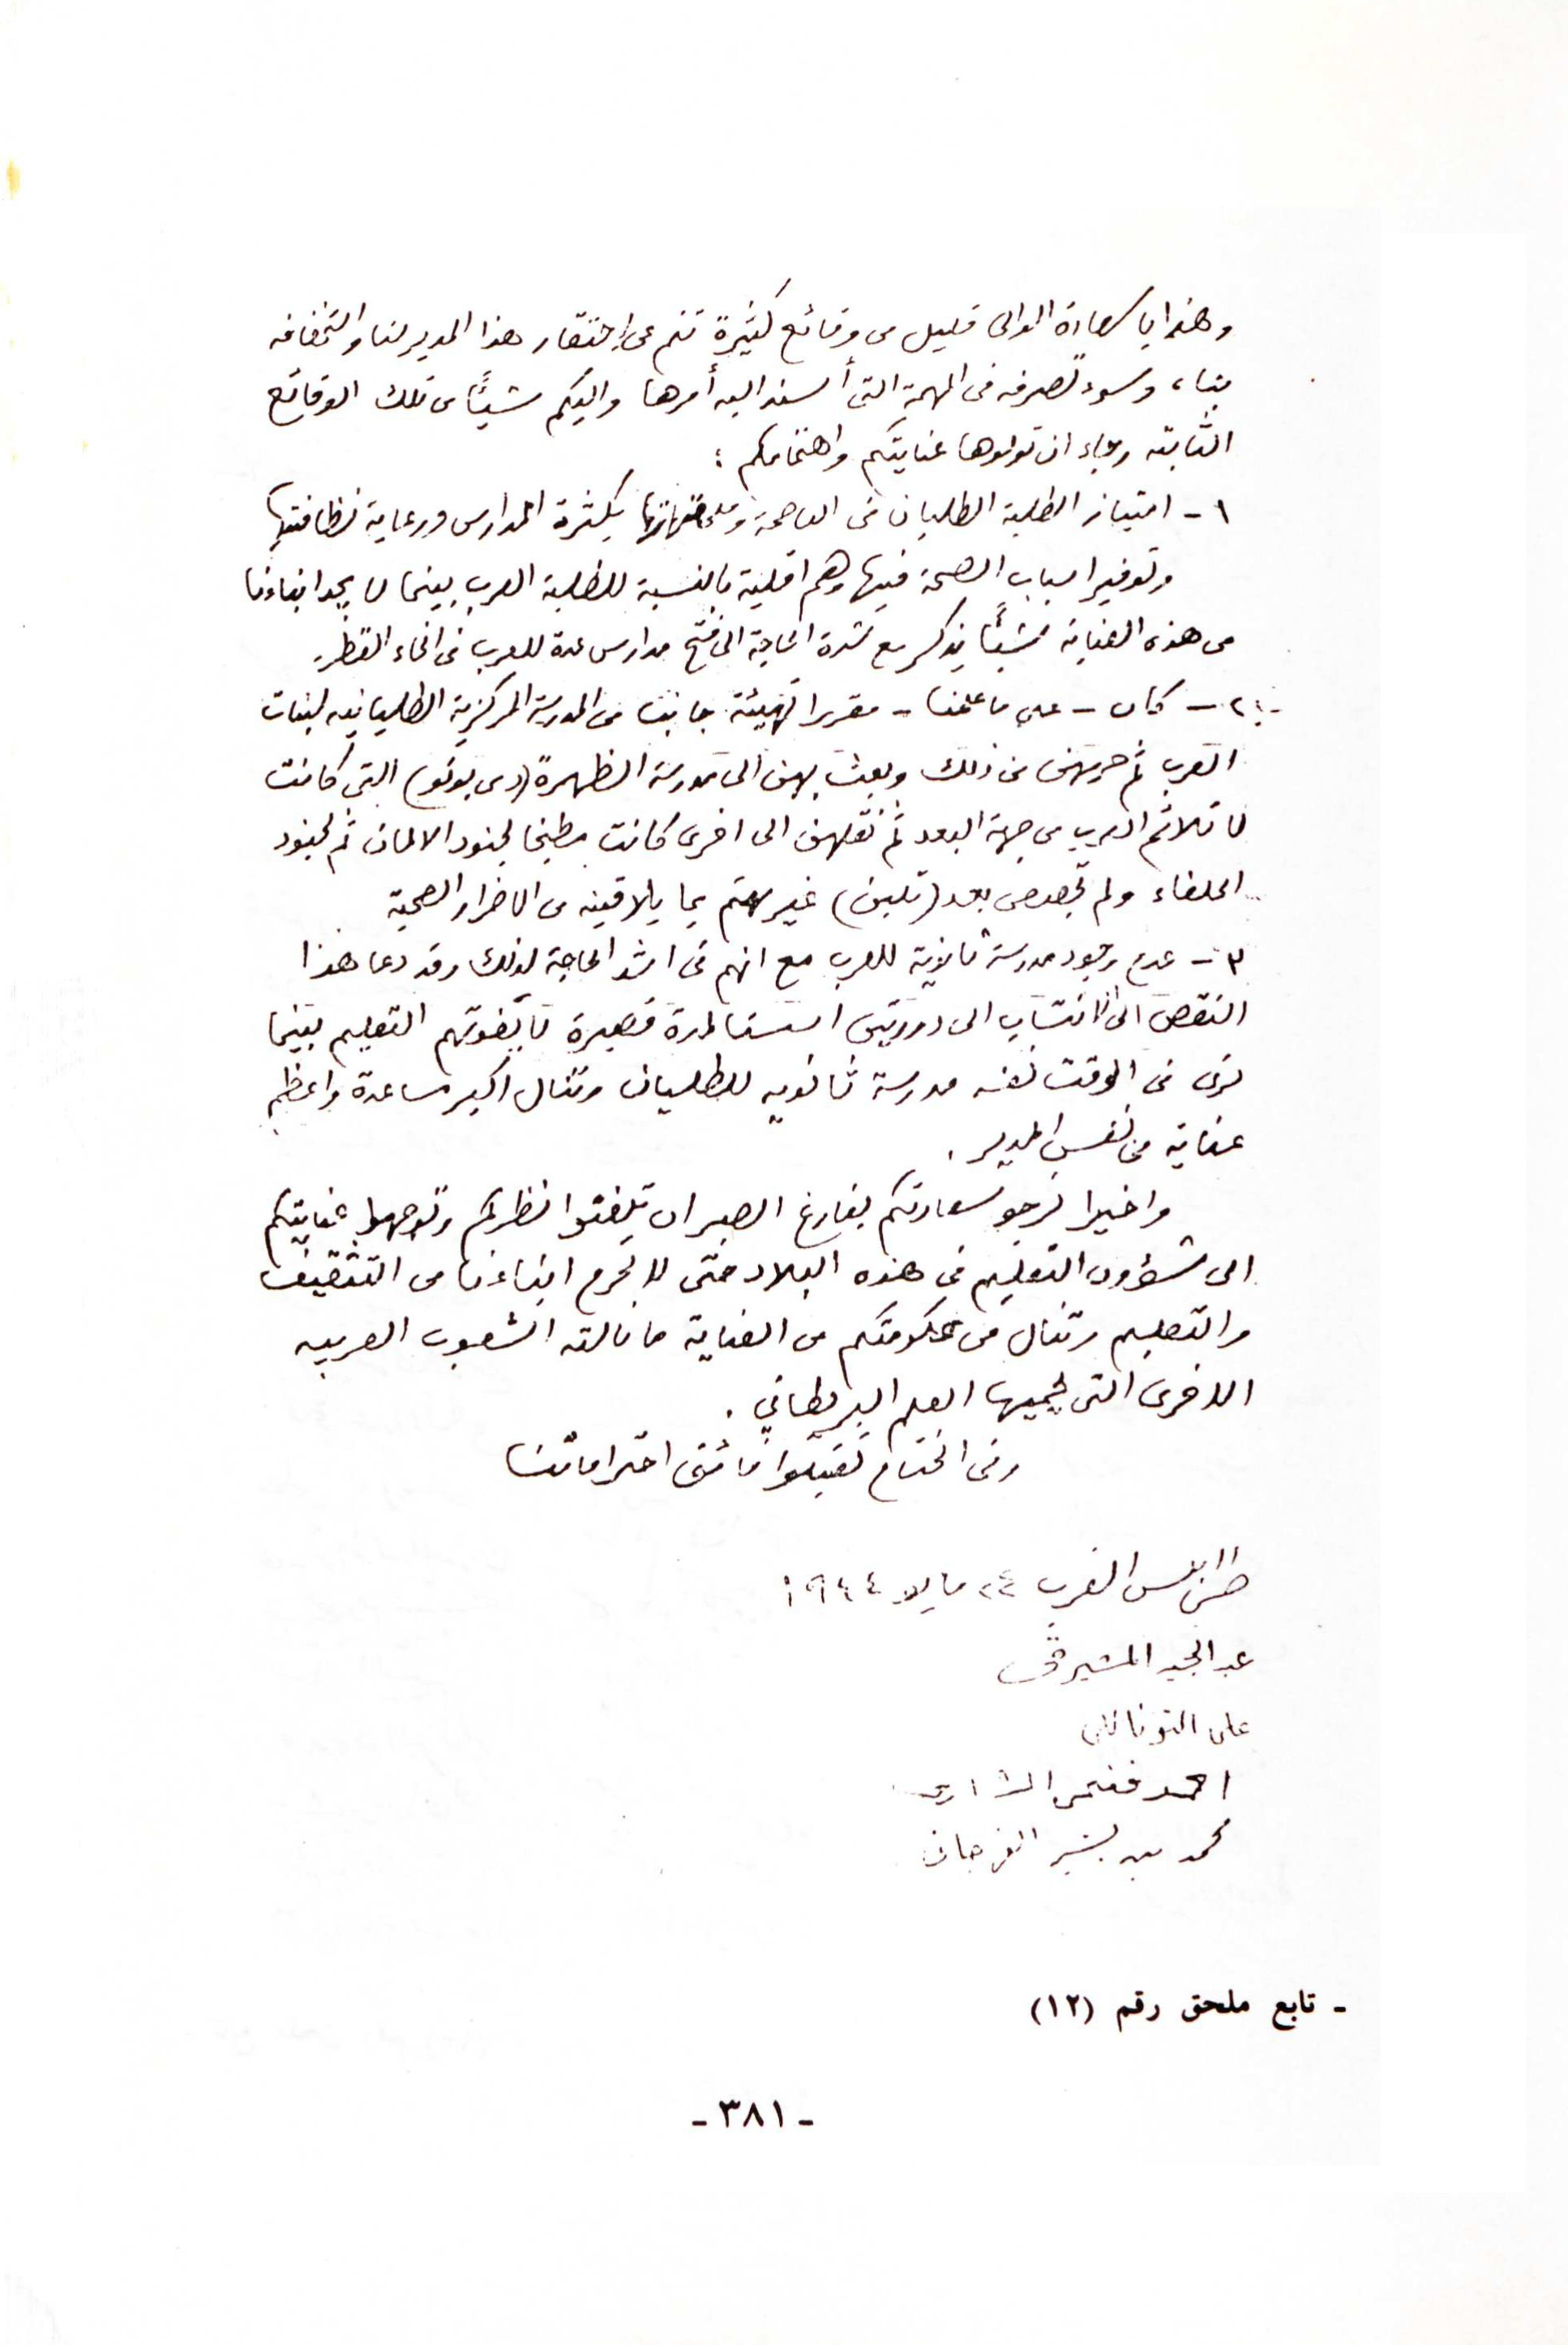 وهذا يا سعادة الوالى قليل من وقائع كثيرة تنم عن إحتقار هذا المدير لنا واستخفافه
بنا، وسوء تصرفه فى المهمة التى أسند اليه أمرها واليكم شيئًا من تلك الوقائع
الثابته رجاء ان تولوها عنايتكم واهتمامكم :
١ - امتياز الطلبة الطليان فى العاصمة وملحقاتها بكثرة المدارس ورعاية نظافتها
وتوفير اسباب الصحة فيها وهم اقلية بالنسبة للطلبة العرب بينما لا يجد ابناءنا
من هذه العناية شيئًا يذكر مع شدة الحاجة الى فتح مدارس عدة للعرب فى انحاء القطر.
٢ - كان - على ما علمنا - مقررا تهيئة جانب من المدرسة المركزية الطليانيه لبنات
العرب ثم حرمهن من ذلك وبعث بهن الى مدرسة الظهرة (دى بونو) التى كانت
لا تلائم العرب من جهة البعد ثم نقلهن الى اخرى كانت مطبخا لجنود الالمان ثم لجنود
الحلفاء ولم تجصص بعد (تلبن) غير مهتم بما يلاقينه من الاضرار الصحية
٣ - عدم وجود مدرسة ثانوية للعرب مع انهم فى اشد الحاجة لذلك وقد دعا هذا
النقص الى الانتساب الى دورتين لمدة قصيرة لا يفوتهم التعليم بينما
نرى فى الوقت نفسه مدرسة ثانويه للطليان وتنال اكبر مساعدة واعظم
عناية من نفس المدير .
واخيرا نرجو سعادتكم بفارغ الصبر ان تلفتوا نظركم وتوجهوا عنايتكم
الى شؤون التعليم في هذه البلاد حتى لا تحرم ابناءنا من التثقيف
والتعليم وتنال من حكومتكم من العناية ما نالته الشعوب العربيه
الاخرى التى يحميها العلم البريطاني .
وفى الختام تقبلوا فائق احتراماتنا
طرابلس الغرب ٢٤ مايو ١٩٤٤
عبد المجيد المشيرقى
على
احمد
محمد بن بشير الفرجانى
- تابع ملحق رقم (١٢)
- ٣٨١ -